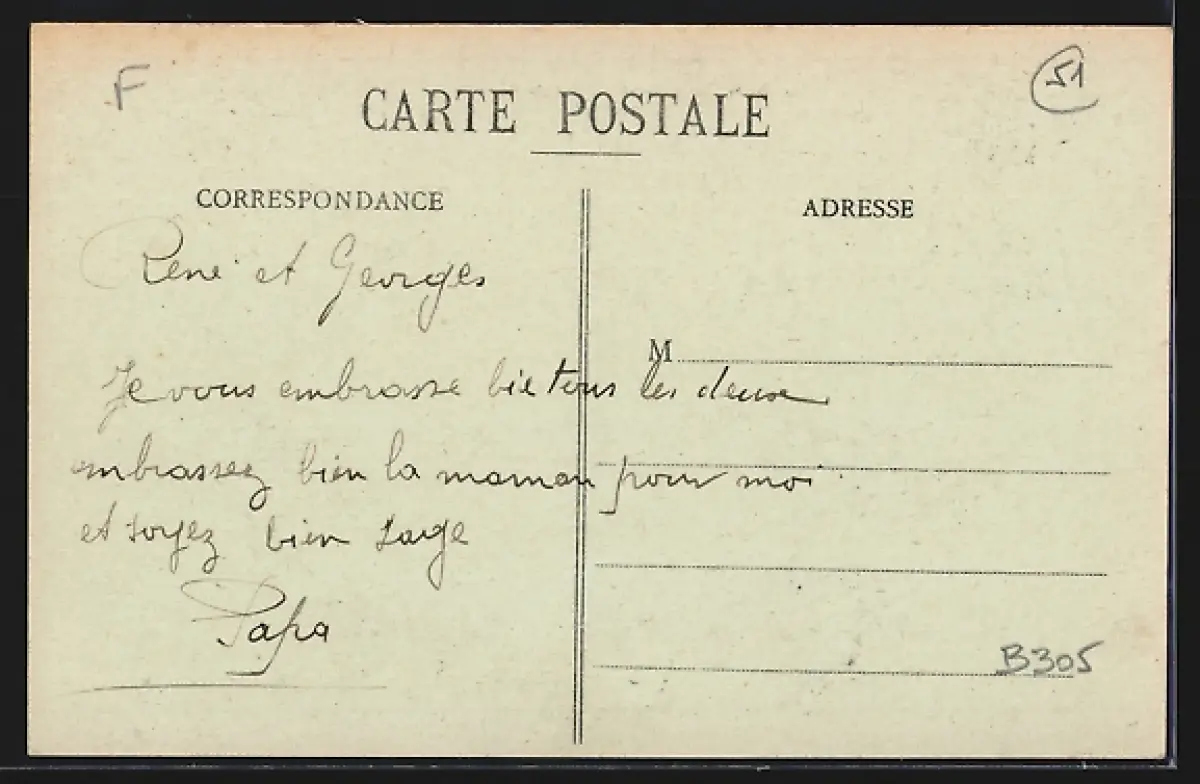 F
51
CARTE POSTALE
CORRESPONDANCE
ADRESSE
René et Georges
M
Je vous embrasse bie tous les deux
embrassez bien la maman pour moi
et soyez bien sage
Papa
B305